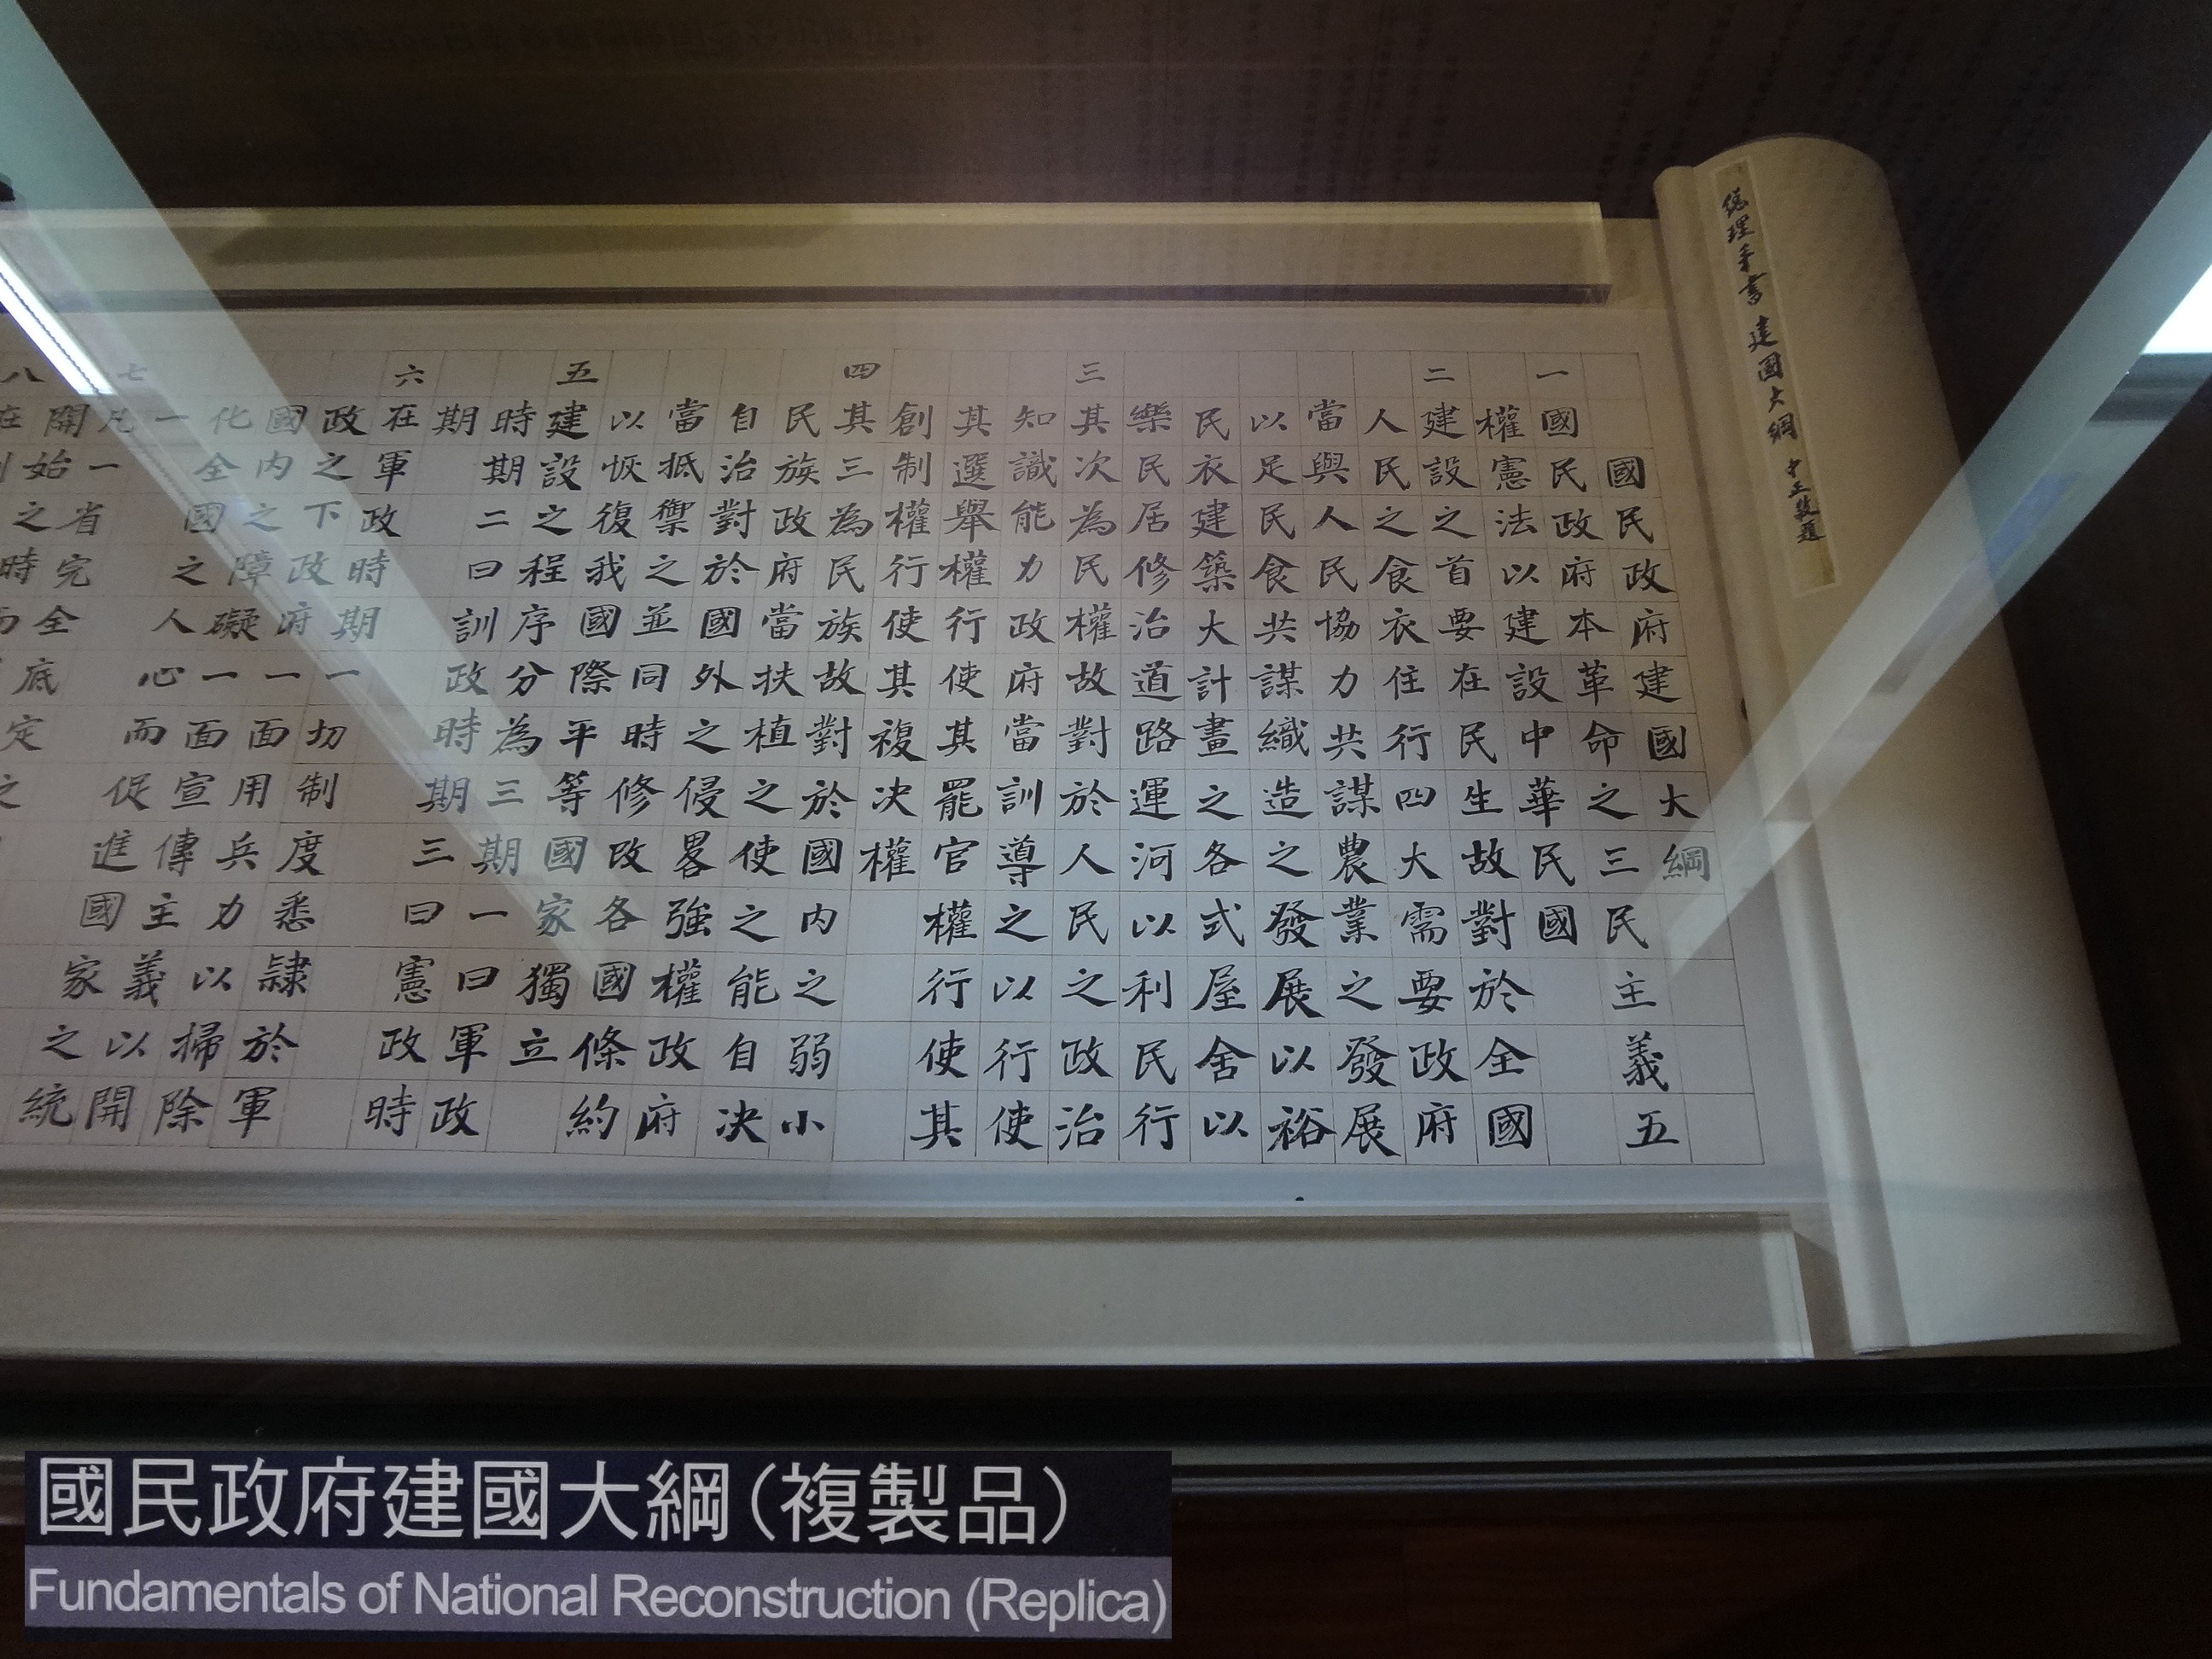 總理手書 建國大綱 中正敬題
國民政府建國大綱
一 國民政府本革命之三民主義五
權憲法以建設中華民國
二 建設之首要在民生故對於全國
人民之食衣住行四大需要政府
當與人民協力共謀農業之發展
以足民食共謀織造之發展以裕
民衣建築大計畫之各式屋舍以
樂民居修治道路運河以利民行
三 其次為民權故對於人民之政治
知識能力政府當訓導之以行使
其選舉權行使其罷官權行使其
創制權行使其複决權
四 其三為民族故對於國內之弱小
民族政府當扶植之使之能自决
自治對於國外之侵畧強權政府
當抵禦之並同時修改各國條約
以恢復我國際平等國家獨立
五 建設之程序分為三期一曰軍政
時期二曰訓政時期三曰憲政時
期
六 在軍政時期一切制度悉隸於軍
政之下政府一面用兵力以掃除
國內之障礙一面宣傳主義以開
化全國之人心而促進國家之統
一
七 凡一省完全底定之
開始之時而
八 在
國民政府建國大綱(複製品)
Fundamentals of National Reconstruction (Replica)